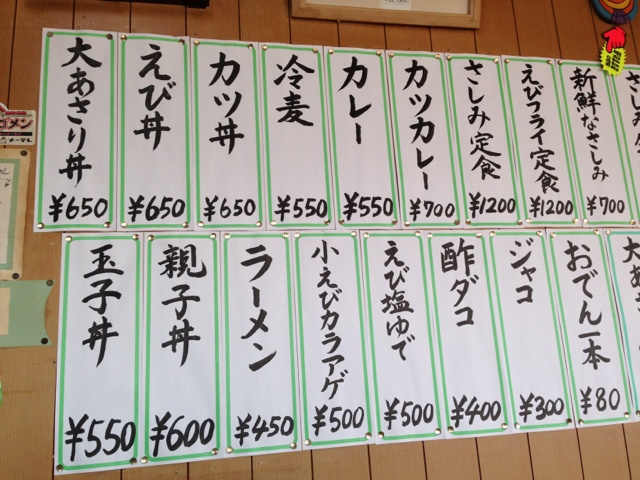 大あさり丼
¥650
えび丼
¥650
カツ丼
¥650
冷麦
¥550
カレー
¥550
カツカレー
¥700
さしみ定食
¥1200
えびフライ定食
¥1200
新鮮なさしみ
¥700
玉子丼
¥550
親子丼
¥600
ラーメン
¥450
小えびカラアゲ
¥500
えび塩ゆで
¥500
酢ダコ
¥400
ジャコ
¥300
おでん一本
¥80